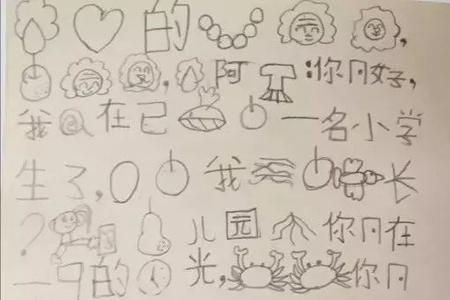 的
阿:你月好,
我在已一名小学
生了,我长
?儿园你月在
一的光,你月